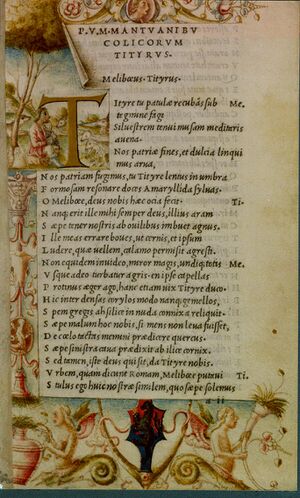 P. V. M. MANTVANI BV
COLICORVM
TITYRVS.
Meliboeus. Tityrus.
Tityre tu patulæ recubãs sub Me.
tegmine fagi
Siluestrem tenui musam meditaris
auena.
Nos patriæ fines, et dulcia linqui
mus arua,
N os patriam fugimus, tu Tityre lentus in umbra
F ormosam resonare doces Amaryllida syluas.
O Meliboee, deus nobis hæc ocia fecit. Ti.
N anq; erit ille mihi semper deus, illius aram
S æpe tener nostris ab ouilibus imbuet agnus.
I lle meas errare boues, ut cernis, et ipsum
L udere, quæ uellem, calamo permisit agresti.
N on equidem inuideo, miror magis, undiq; totis Me.
V sque adeo turbatur agris. en ipse capellas
P rotinus æger ago, hanc etiam uix Tityre duco.
H ic inter densas corylos modo nanq; gemellos,
S pem gregis ah silice in nuda connixa reliquit.
S æpe malum hoc nobis, si mens non leua fuisset,
D e coelo tactas memini prædicere quercus.
S æpe sinistra caua prædixit ab ilice cornix.
S ed tamen, iste deus qui sit, da Tityre nobis.
V rbem, quam dicunt Romam, Meliboee putaui Ti.
S tultus ego huic nostræ similem, quo sæpe solemus
a ii